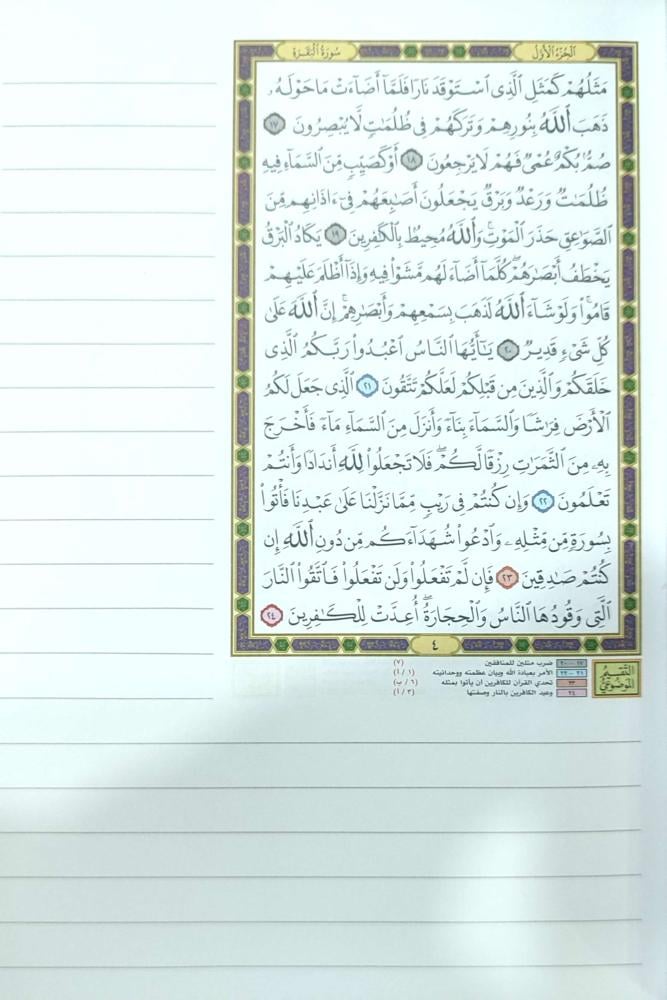 الجزء الأول
سورة البقرة
مَثَلُهُمْ كَمَثَلِ ٱلَّذِى ٱسْتَوْقَدَ نَارًا فَلَمَّآ أَضَآءَتْ مَا حَوْلَهُۥ
ذَهَبَ ٱللَّهُ بِنُورِهِمْ وَتَرَكَهُمْ فِى ظُلُمَٰتٍ لَّا يُبْصِرُونَ ١٧
صُمٌّۢ بُكْمٌ عُمْىٌ فَهُمْ لَا يَرْجِعُونَ ١٨ أَوْ كَصَيِّبٍ مِّنَ ٱلسَّمَآءِ فِيهِ
ظُلُمَٰتٌ وَرَعْدٌ وَبَرْقٌ يَجْعَلُونَ أَصَٰبِعَهُمْ فِىٓ ءَاذَانِهِم مِّنَ
ٱلصَّوَٰعِقِ حَذَرَ ٱلْمَوْتِ ۚ وَٱللَّهُ مُحِيطٌۢ بِٱلْكَٰفِرِينَ ١٩ يَكَادُ ٱلْبَرْقُ
يَخْطَفُ أَبْصَٰرَهُمْ ۖ كُلَّمَآ أَضَآءَ لَهُم مَّشَوْا۟ فِيهِ وَإِذَآ أَظْلَمَ عَلَيْهِمْ
قَامُوا۟ ۚ وَلَوْ شَآءَ ٱللَّهُ لَذَهَبَ بِسَمْعِهِمْ وَأَبْصَٰرِهِمْ ۚ إِنَّ ٱللَّهَ عَلَىٰ
كُلِّ شَىْءٍ قَدِيرٌ ٢٠ يَٰٓأَيُّهَا ٱلنَّاسُ ٱعْبُدُوا۟ رَبَّكُمُ ٱلَّذِى
خَلَقَكُمْ وَٱلَّذِينَ مِن قَبْلِكُمْ لَعَلَّكُمْ تَتَّقُونَ ٢١ ٱلَّذِى جَعَلَ لَكُمُ
ٱلْأَرْضَ فِرَٰشًا وَٱلسَّمَآءَ بِنَآءً وَأَنزَلَ مِنَ ٱلسَّمَآءِ مَآءً فَأَخْرَجَ
بِهِۦ مِنَ ٱلثَّمَرَٰتِ رِزْقًا لَّكُمْ ۖ فَلَا تَجْعَلُوا۟ لِلَّهِ أَندَادًا وَأَنتُمْ
تَعْلَمُونَ ٢٢ وَإِن كُنتُمْ فِى رَيْبٍ مِّمَّا نَزَّلْنَا عَلَىٰ عَبْدِنَا فَأْتُوا۟
بِسُورَةٍ مِّن مِّثْلِهِۦ وَٱدْعُوا۟ شُهَدَآءَكُم مِّن دُونِ ٱللَّهِ إِن
كُنتُمْ صَٰدِقِينَ ٢٣ فَإِن لَّمْ تَفْعَلُوا۟ وَلَن تَفْعَلُوا۟ فَٱتَّقُوا۟ ٱلنَّارَ
ٱلَّتِى وَقُودُهَا ٱلنَّاسُ وَٱلْحِجَارَةُ ۖ أُعِدَّتْ لِلْكَٰفِرِينَ ٢٤
٤
التقسيم الموضوعي
١٧ - ٢٠ ضرب مثلين للمنافقين (٧)
٢١ - ٢٢ الأمر بعبادة الله وبيان عظمته ووحدانيته (١ / أ)
٢٣ تحدي القرآن للكافرين أن يأتوا بمثله (٦ / ب)
٢٤ وعيد الكافرين بالنار وصفتها (٣ / أ)